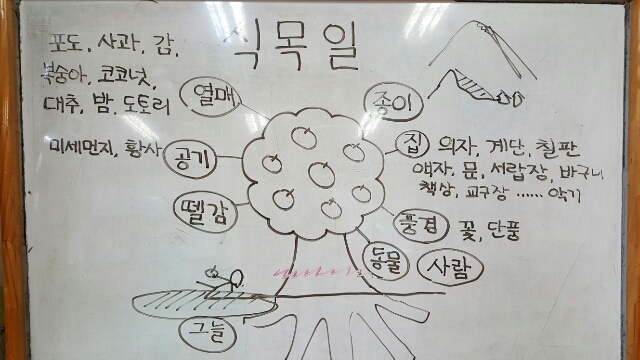 식목일
포도, 사과, 감,
복숭아, 코코넛,
대추, 밤, 도토리
열매
종이
미세먼지, 황사
공기
집
의자, 계단, 칠판
액자, 문, 서랍장, 바구니
책상, 교구장 ...... 악기
뗄감
풍경
꽃, 단풍
동물
사람
그늘